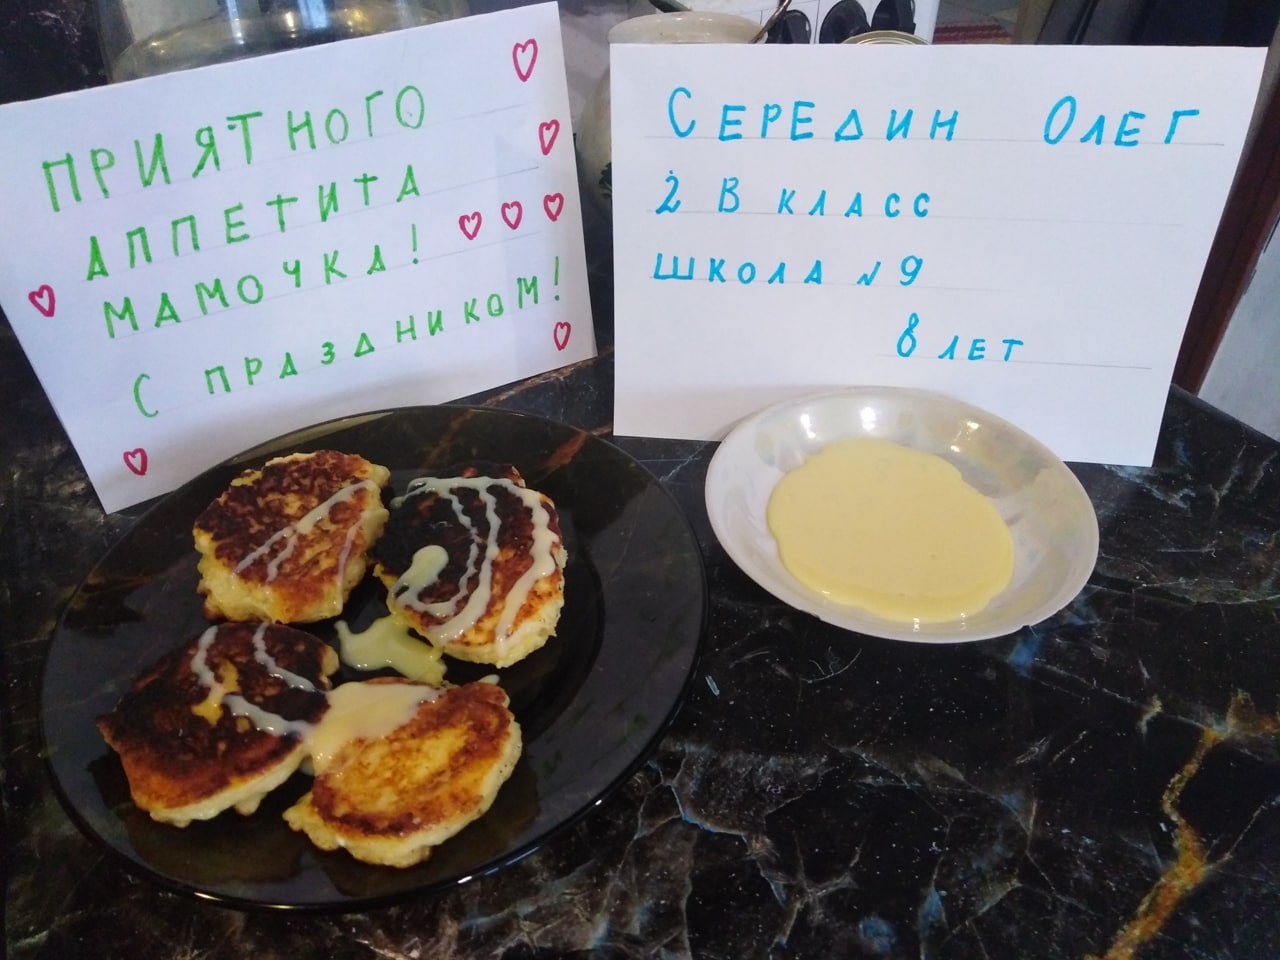 ПРИЯТНОГО
АППЕТИТА
МАМОЧКА!
С ПРАЗДНИКОМ!
СЕРЕДИН ОЛЕГ
2 В КЛАСС
ШКОЛА N 9
8 ЛЕТ